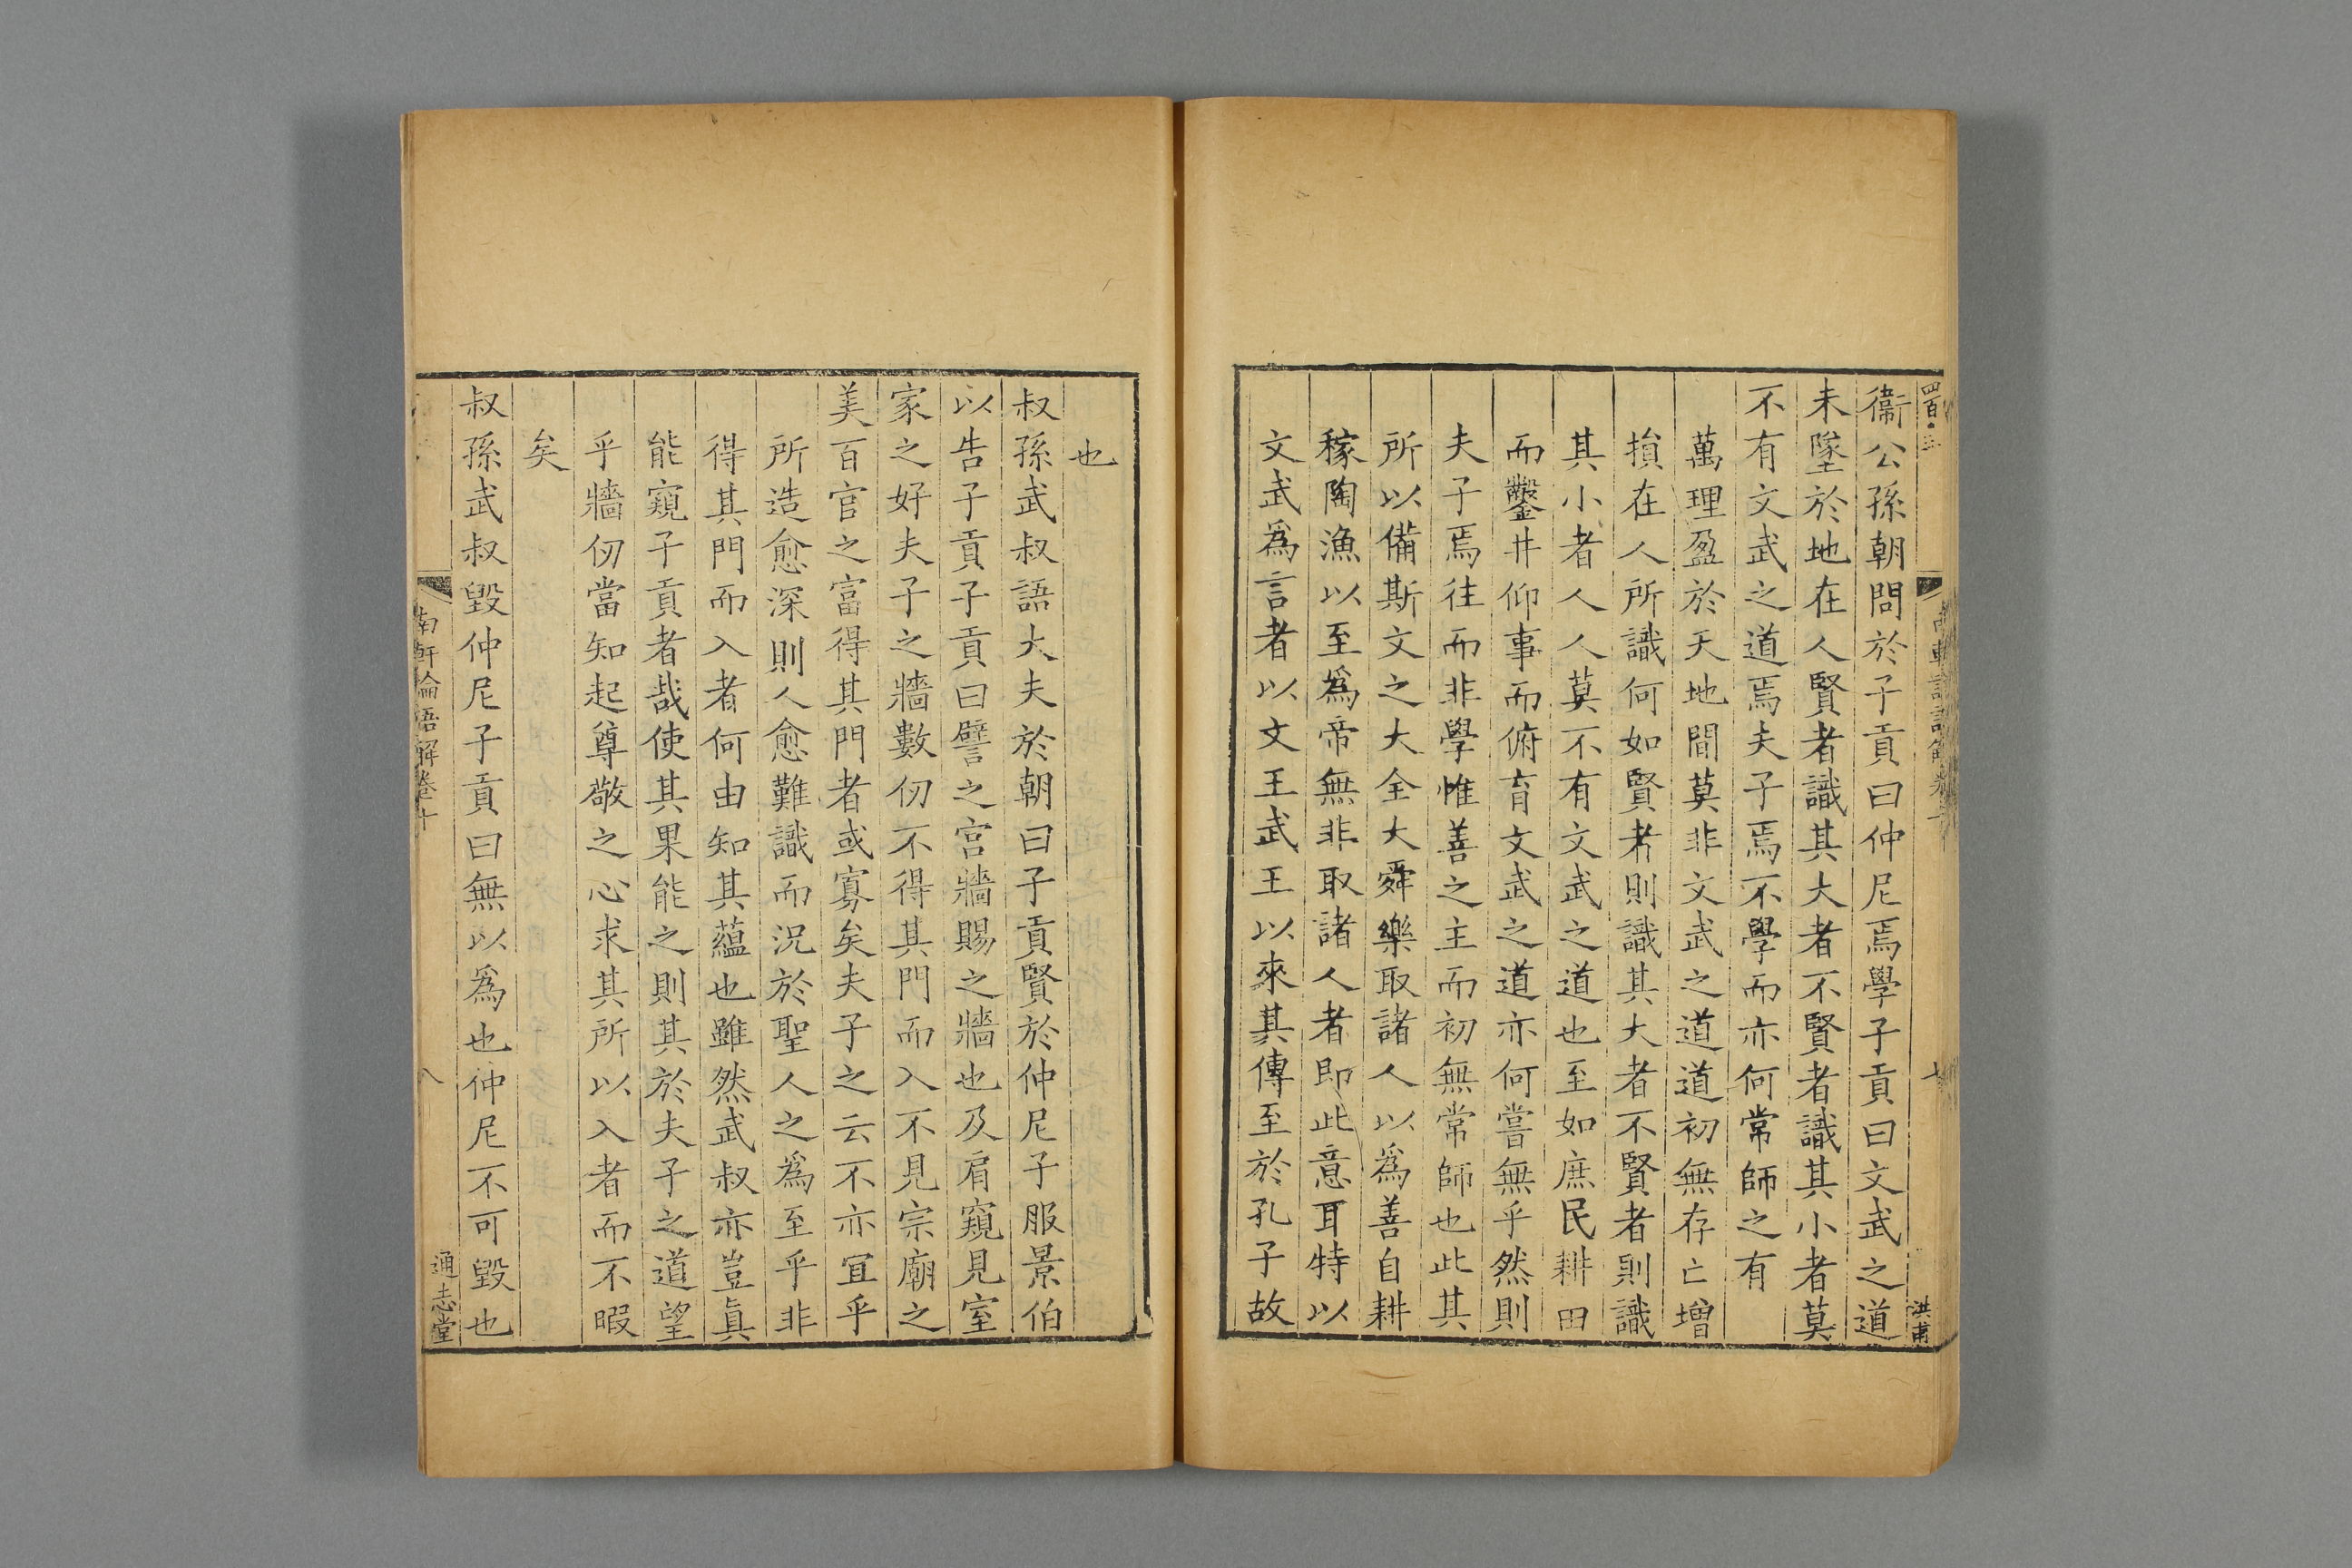 四百·三
七
洪甫
衞公孫朝問於子貢曰仲尼焉學子貢曰文武之道
未墜於地在人賢者識其大者不賢者識其小者莫
不有文武之道焉夫子焉不學而亦何常師之有
萬理盈於天地間莫非文武之道道初無存亡增
損在人所識何如賢者則識其大者不賢者則識
其小者人人莫不有文武之道也至如庶民耕田
而鑿井仰事而俯育文武之道亦何嘗無乎然則
夫子焉往而非學惟善之主而初無常師也此其
所以備斯文之大全大舜樂取諸人以為善自耕
稼陶漁以至為帝無非取諸人者即此意耳特以
文武爲言者以文王武王以來其傳至於孔子故
也
叔孫武叔語大夫於朝曰子貢賢於仲尼子服景伯
以告子貢子貢曰譬之宮牆賜之牆也及肩窺見室
家之好夫子之牆數仞不得其門而入不見宗廟之
美百官之富得其門者或寡矣夫子之云不亦宜乎
所造愈深則人愈難識而況於聖人之爲至乎非
得其門而入者何由知其蘊也雖然武叔亦豈眞
能窺子貢者哉使其果能之則其於夫子之道望
乎牆仞當知起尊敬之心求其所以入者而不暇
矣
叔孫武叔毀仲尼子貢曰無以爲也仲尼不可毀也
南軒論語解卷十
八
通志堂